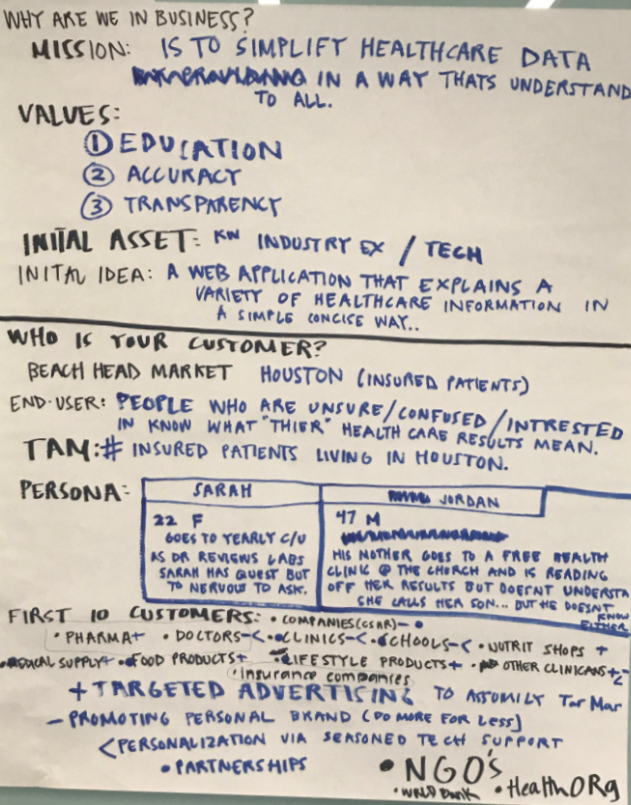 WHY ARE WE IN BUSINESS?
MISSION: IS TO SIMPLIFY HEALTHCARE DATA
IN A WAY THATS UNDERSTAND
TO ALL.
VALUES:
① EDUCATION
② ACCURACY
③ TRANSPARENCY
INITAL ASSET: KN INDUSTRY EX / TECH
INITAL IDEA: A WEB APPLICATION THAT EXPLAINS A
VARIETY OF HEALTHCARE INFORMATION IN
A SIMPLE CONCISE WAY..
WHO IS YOUR CUSTOMER?
BEACH HEAD MARKET HOUSTON (INSURED PATIENTS)
END-USER: PEOPLE WHO ARE UNSURE/CONFUSED/INTRESTED
IN KNOW WHAT "THIER" HEALTH CARE RESULTS MEAN.
TAM: # INSURED PATIENTS LIVING IN HOUSTON.
PERSONA:
SARAH
22 F
GOES TO YEARLY C/U
AS DR REVIEWS LABS
SARAH HAS QUEST BUT
TO NERVOUS TO ASK.
JORDAN
47 M
HIS MOTHER GOES TO A FREE HEALTH
CLINIC @ THE CHURCH AND IS READING
OFF HER RESULTS BUT DOESNT UNDERSTA
SHE CALLS HER SON... BUT HE DOESNT
KNOW
EITHER
FIRST 10 CUSTOMERS: • COMPANIES (CSAR) - •
• PHARMA+ • DOCTORS-< • CLINICS-< • SCHOOLS-< • NUTRIT SHOPS +
• MEDICAL SUPPLY+ • FOOD PRODUCTS+ • LIFESTYLE PRODUCTS+ • OTHER CLINICANS+<
• Insurance companies
+ TARGETED ADVERTISING TO Tar Mar
- PROMOTING PERSONAL BRAND (DO MORE FOR LESS)
< PERSONALIZATION VIA SEASONED TECH SUPPORT
• PARTNERSHIPS
• NGO'S
• WRLD Bank • Health ORg